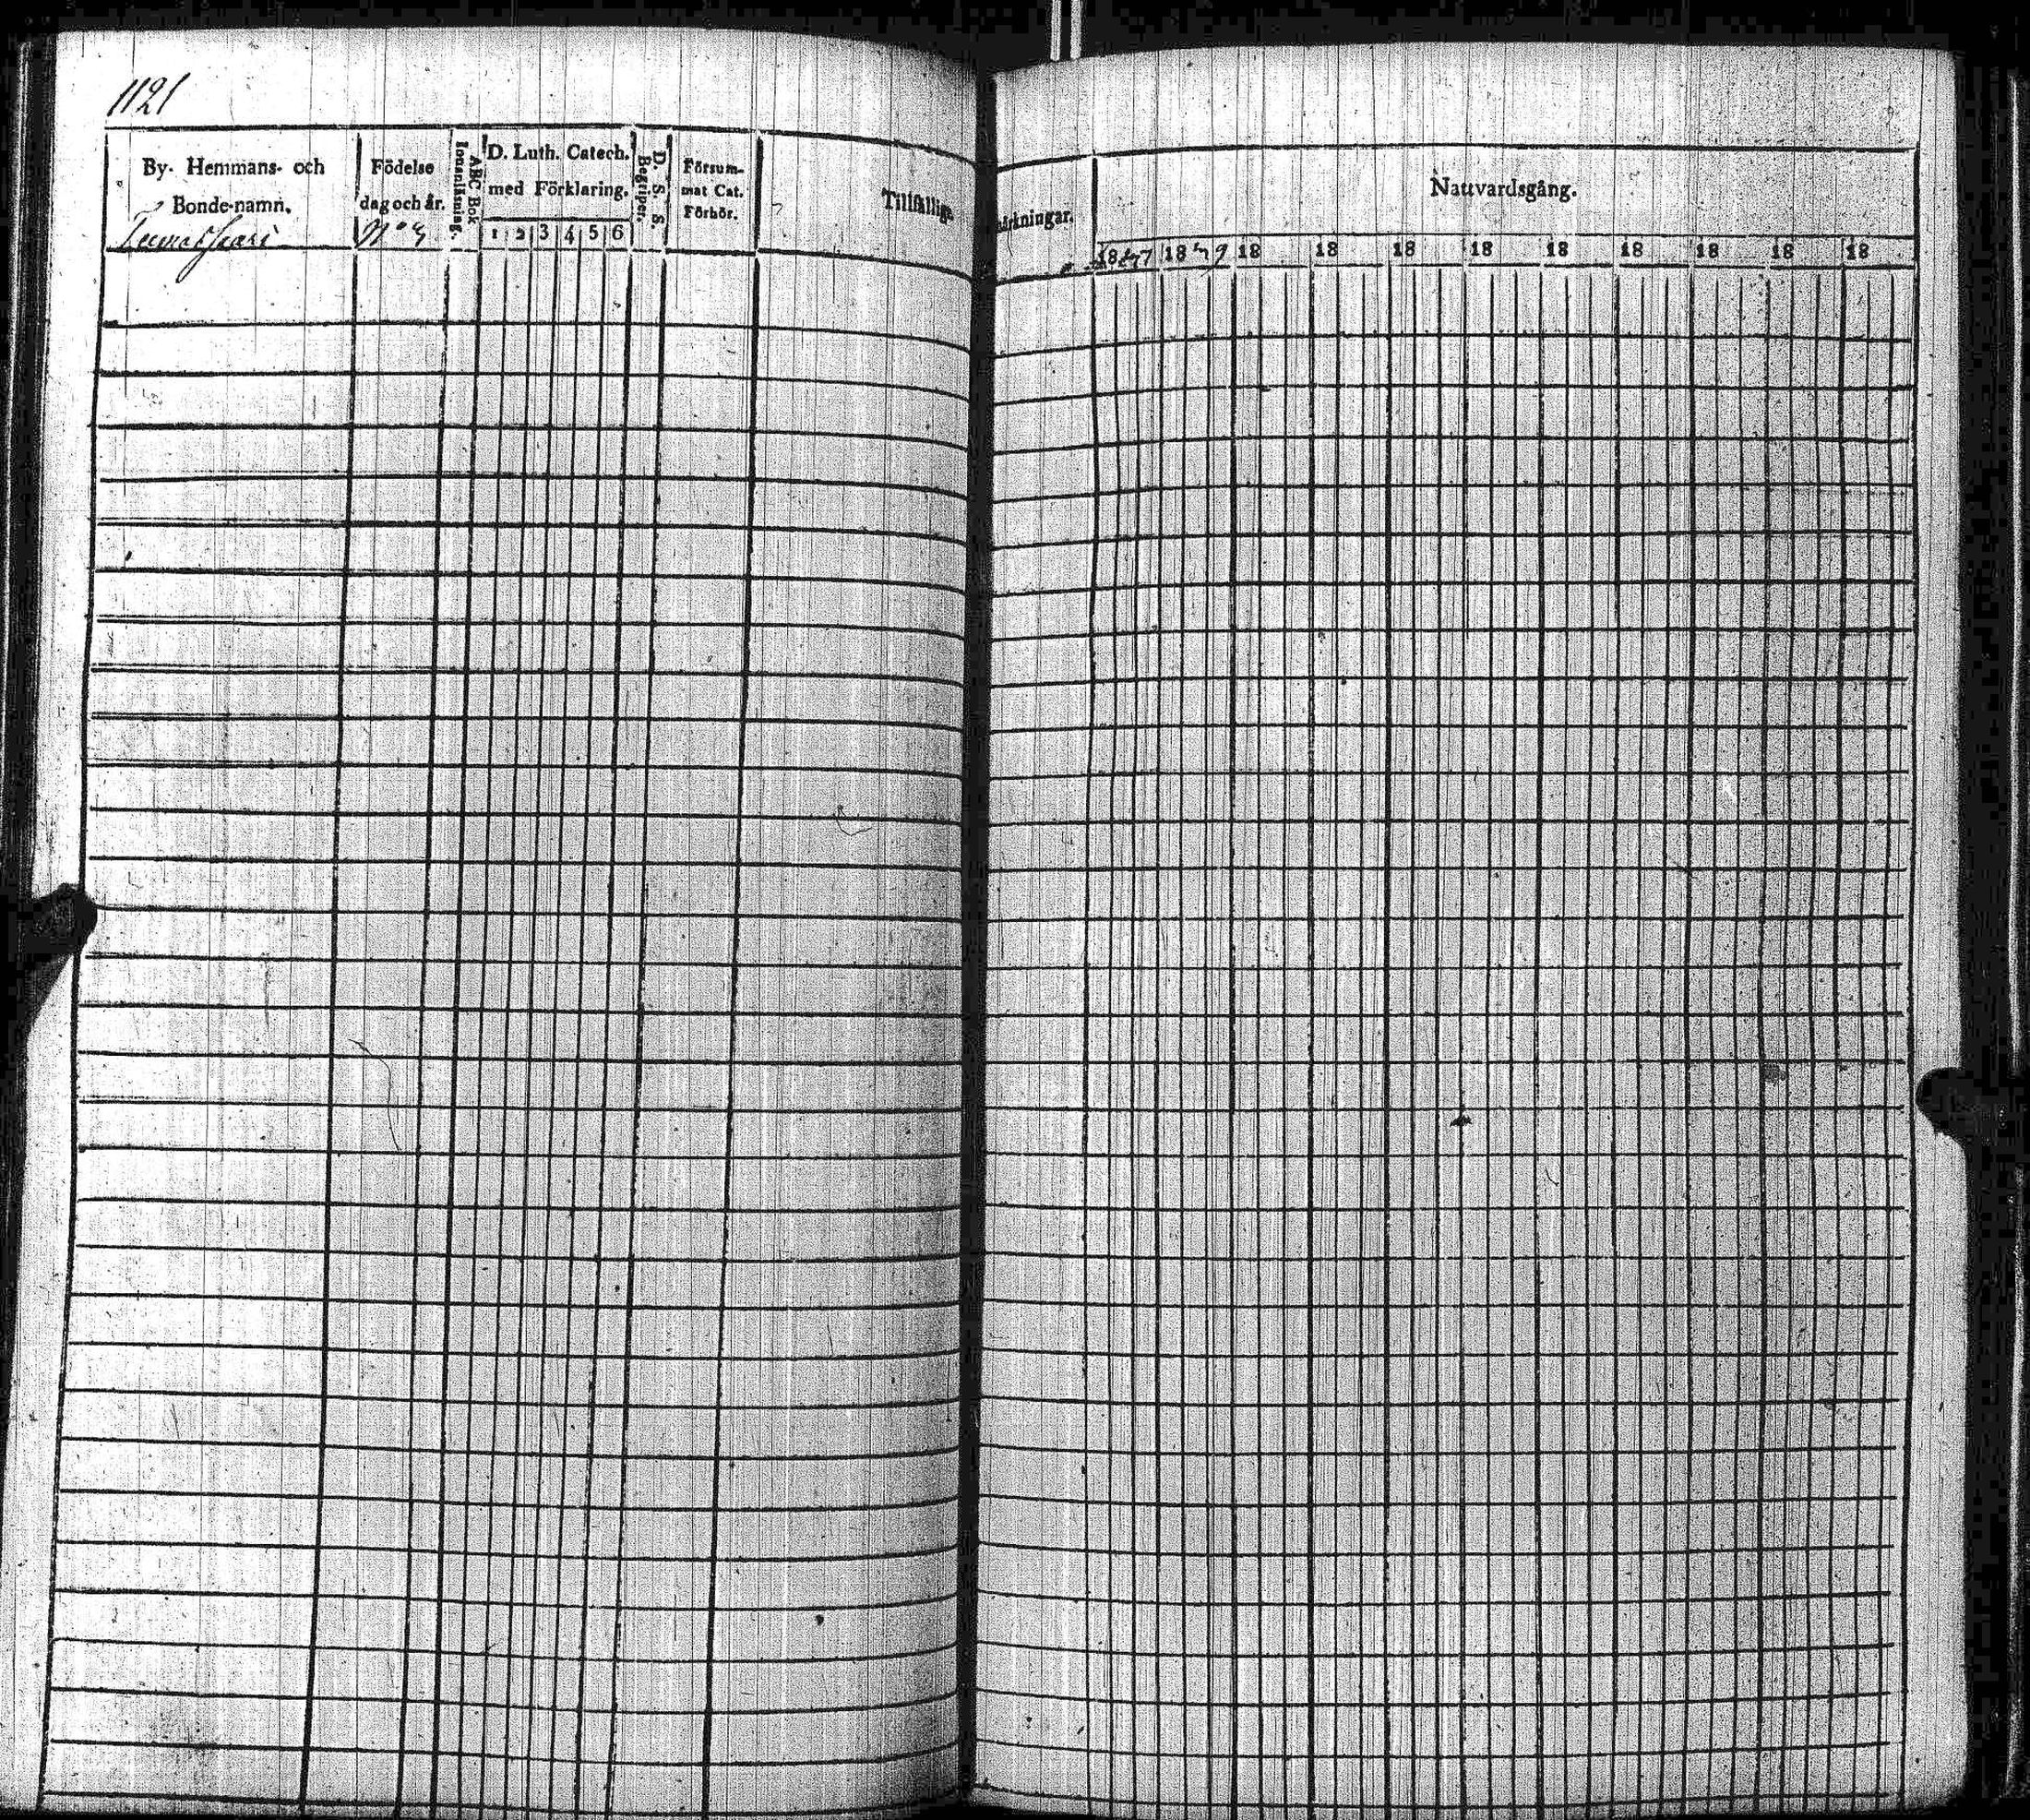 1121
By- Hemmans- och
Bonde-namn.
Födelse
dag och år.
ABC Bok
Innanläsning.
D. Luth. Catech.
med Förklaring.
1 2 3 4 5 6
D. S. S.
Begriper.
Försum-
mat Cat.
Förhör.
Tillfällige
märkningar.
Nattvardsgång.
No 3
18 18 18 18 18 18 18 18 18 18 18